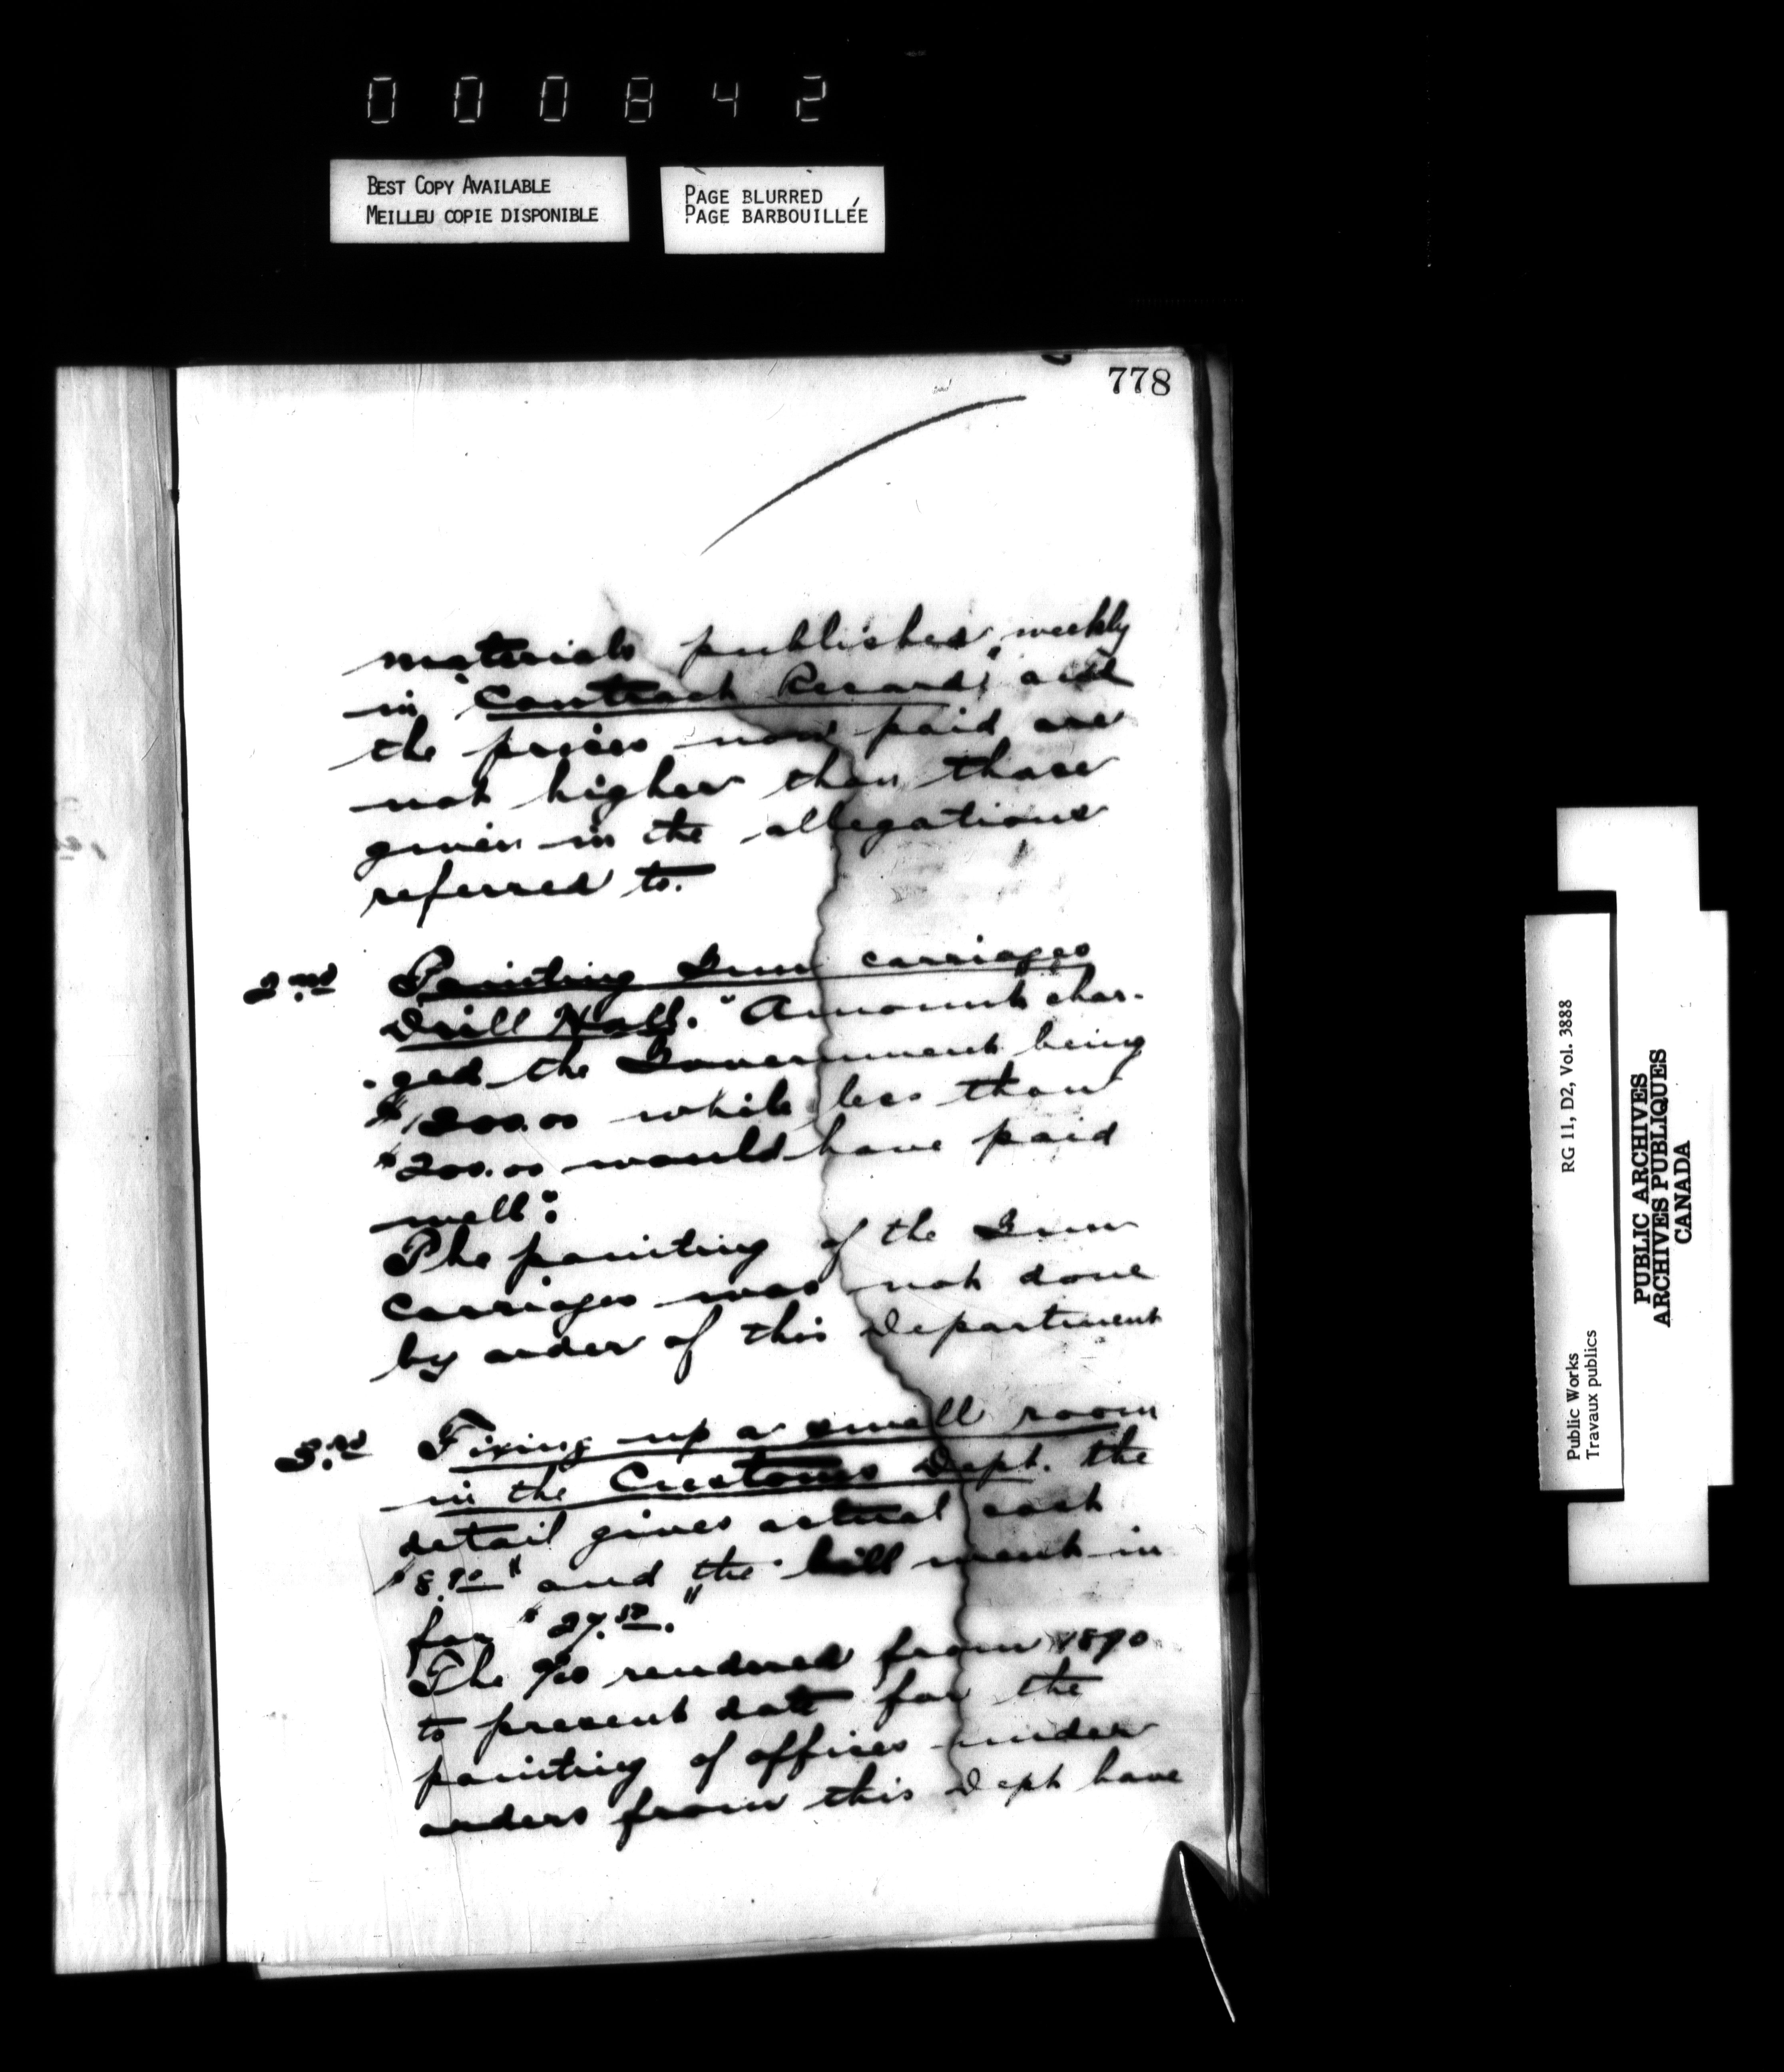 000842
BEST COPY AVAILABLE
MEILLEU COPIE DISPONIBLE
PAGE BLURRED
PAGE BARBOUILLÉE
778
materials published, weekly
in "Contract Record" and
the prices now paid are
not higher than those
given in the allegations
referred to.
2nd Painting Gun carriages
Drill Hall. "Amount char-
-ged the Government being
$1200.00 while less than
$200.00 would have paid
well".
The painting of the Gun
carriages was not done
by order of this Department
3rd Fixing up a small room
in the Customs Dept. the
detail gives actual cost
$8.90" and "the bill went in
for $27.50."
The a/cs rendered from 1890
to present date for the
painting of offices under
orders from this Dept have
Public Works
Travaux publics
RG 11, D2, Vol. 3888
PUBLIC ARCHIVES
ARCHIVES PUBLIQUES
CANADA